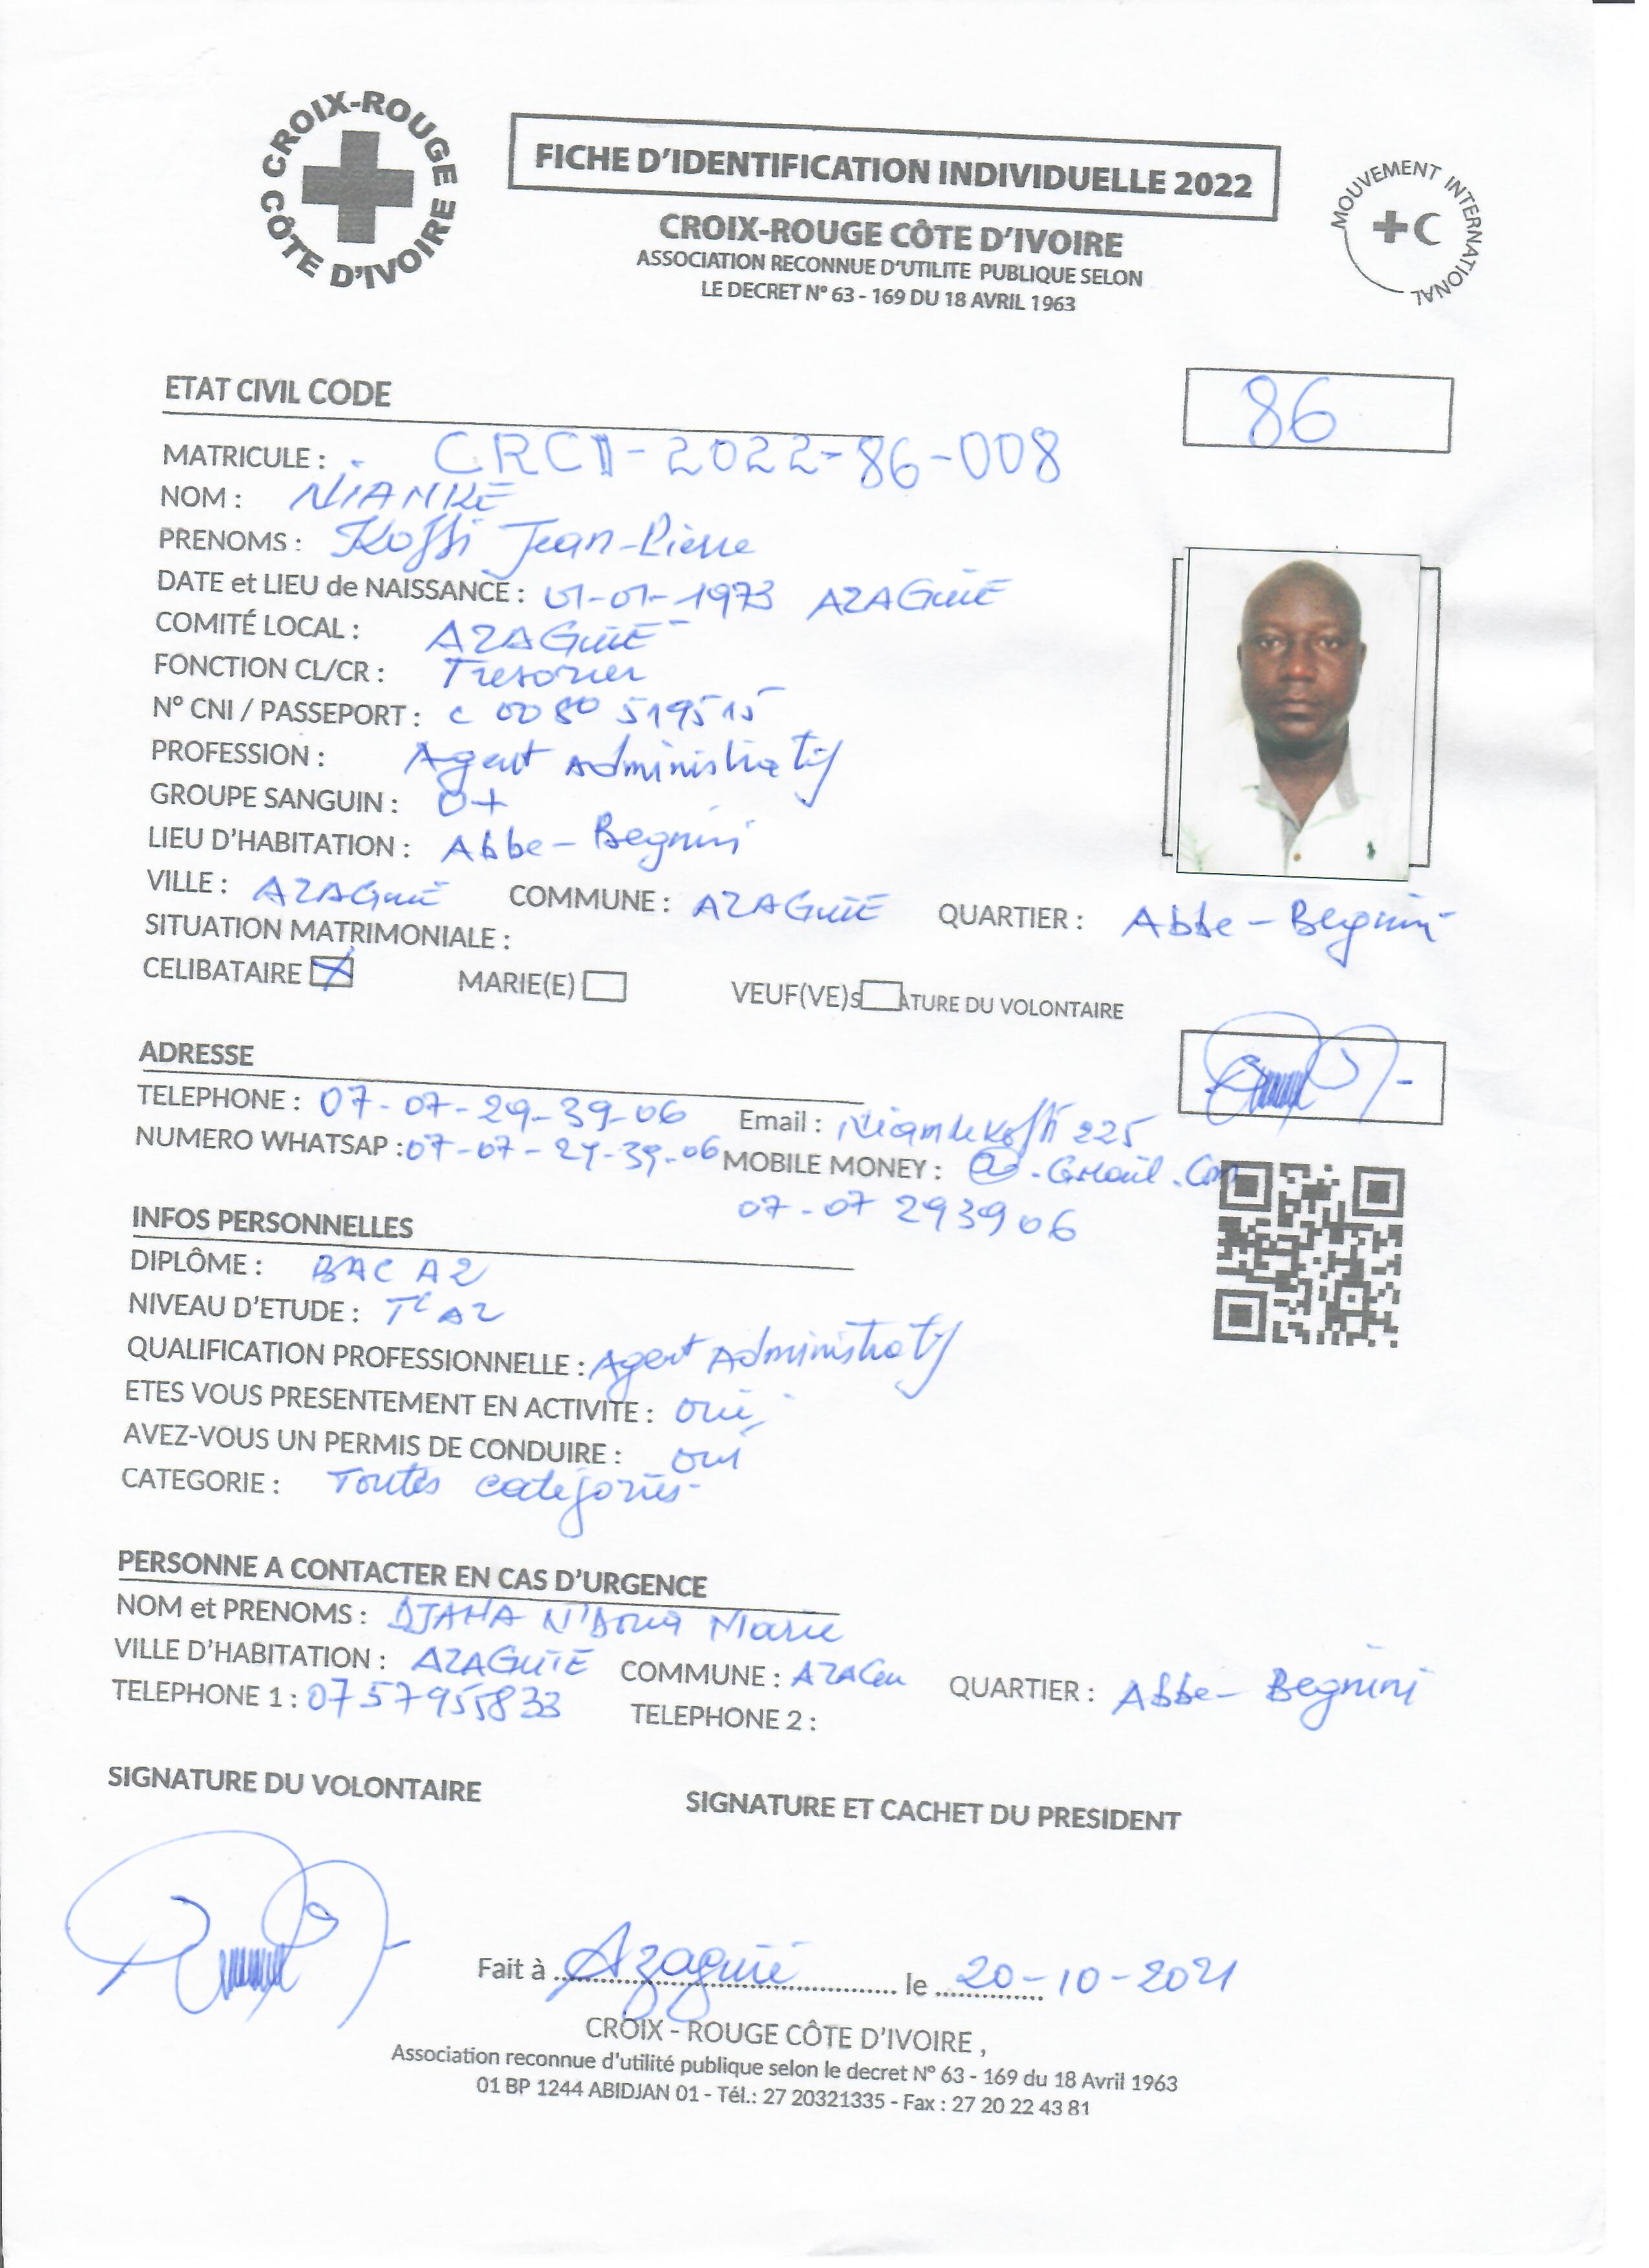 CROIX-ROUGE CÔTE D'IVOIRE
FICHE D'IDENTIFICATION INDIVIDUELLE 2022
MOUVEMENT INTERNATIONAL
CROIX-ROUGE CÔTE D'IVOIRE
ASSOCIATION RECONNUE D'UTILITE PUBLIQUE SELON
LE DECRET N° 63 - 169 DU 18 AVRIL 1963
ETAT CIVIL CODE
86
MATRICULE : CRCI-2022-86-008
NOM : NIANKE
PRENOMS : Koffi Jean-Pierre
DATE et LIEU de NAISSANCE : 01-01-1973 AZAGUIE
COMITÉ LOCAL : AZAGUIE
FONCTION CL/CR : Tresorier
N° CNI / PASSEPORT : C 0080 519515
PROFESSION : Agent Administratif
GROUPE SANGUIN : O+
LIEU D'HABITATION : Abbe-Begnini
VILLE : AZAGUIE COMMUNE : AZAGUIE QUARTIER : Abbe-Begnini
SITUATION MATRIMONIALE :
CELIBATAIRE MARIE(E) VEUF(VE)S ATURE DU VOLONTAIRE
ADRESSE
TELEPHONE : 07-07-29-39-06 Email : Niankekoffi225
NUMERO WHATSAP : 07-07-29-39-06 MOBILE MONEY : @-Gmail.Com
07-07 293906
INFOS PERSONNELLES
DIPLÔME : BAC A2
NIVEAU D'ETUDE : Tle A2
QUALIFICATION PROFESSIONNELLE : Agent Administratif
ETES VOUS PRESENTEMENT EN ACTIVITE : oui
AVEZ-VOUS UN PERMIS DE CONDUIRE : oui
CATEGORIE : Toutes categories
PERSONNE A CONTACTER EN CAS D'URGENCE
NOM et PRENOMS : DJAHA N'Doua Marie
VILLE D'HABITATION : AZAGUIE COMMUNE : QUARTIER : Abbe-Begnini
TELEPHONE 1 : 0757955833 TELEPHONE 2 :
SIGNATURE DU VOLONTAIRE SIGNATURE ET CACHET DU PRESIDENT
Fait à Azaguié le 20-10-2021
CROIX - ROUGE CÔTE D'IVOIRE ,
Association reconnue d'utilité publique selon le decret N° 63 - 169 du 18 Avril 1963
01 BP 1244 ABIDJAN 01 - Tél.: 27 20321335 - Fax : 27 20 22 43 81